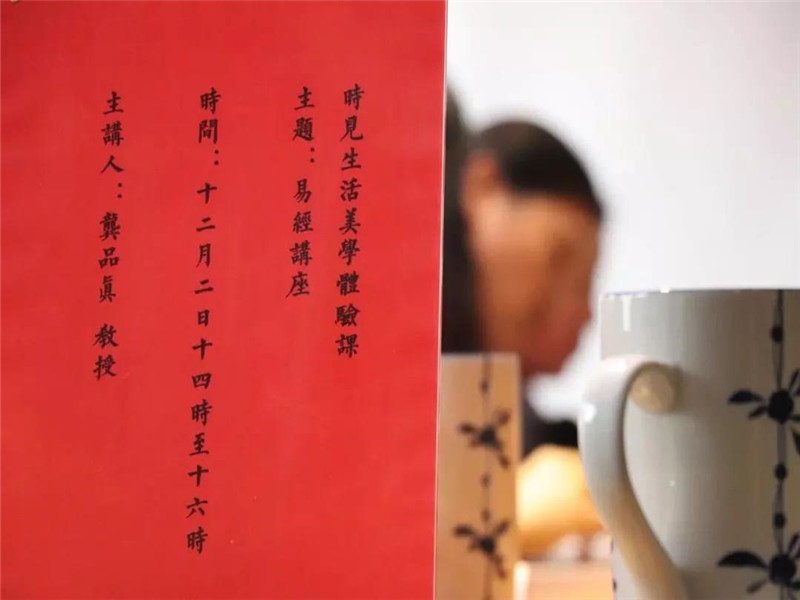 時見生活美學體驗課
主題：易經講座
時間：十二月二日十四時至十六時
主講人：龔品眞 教授